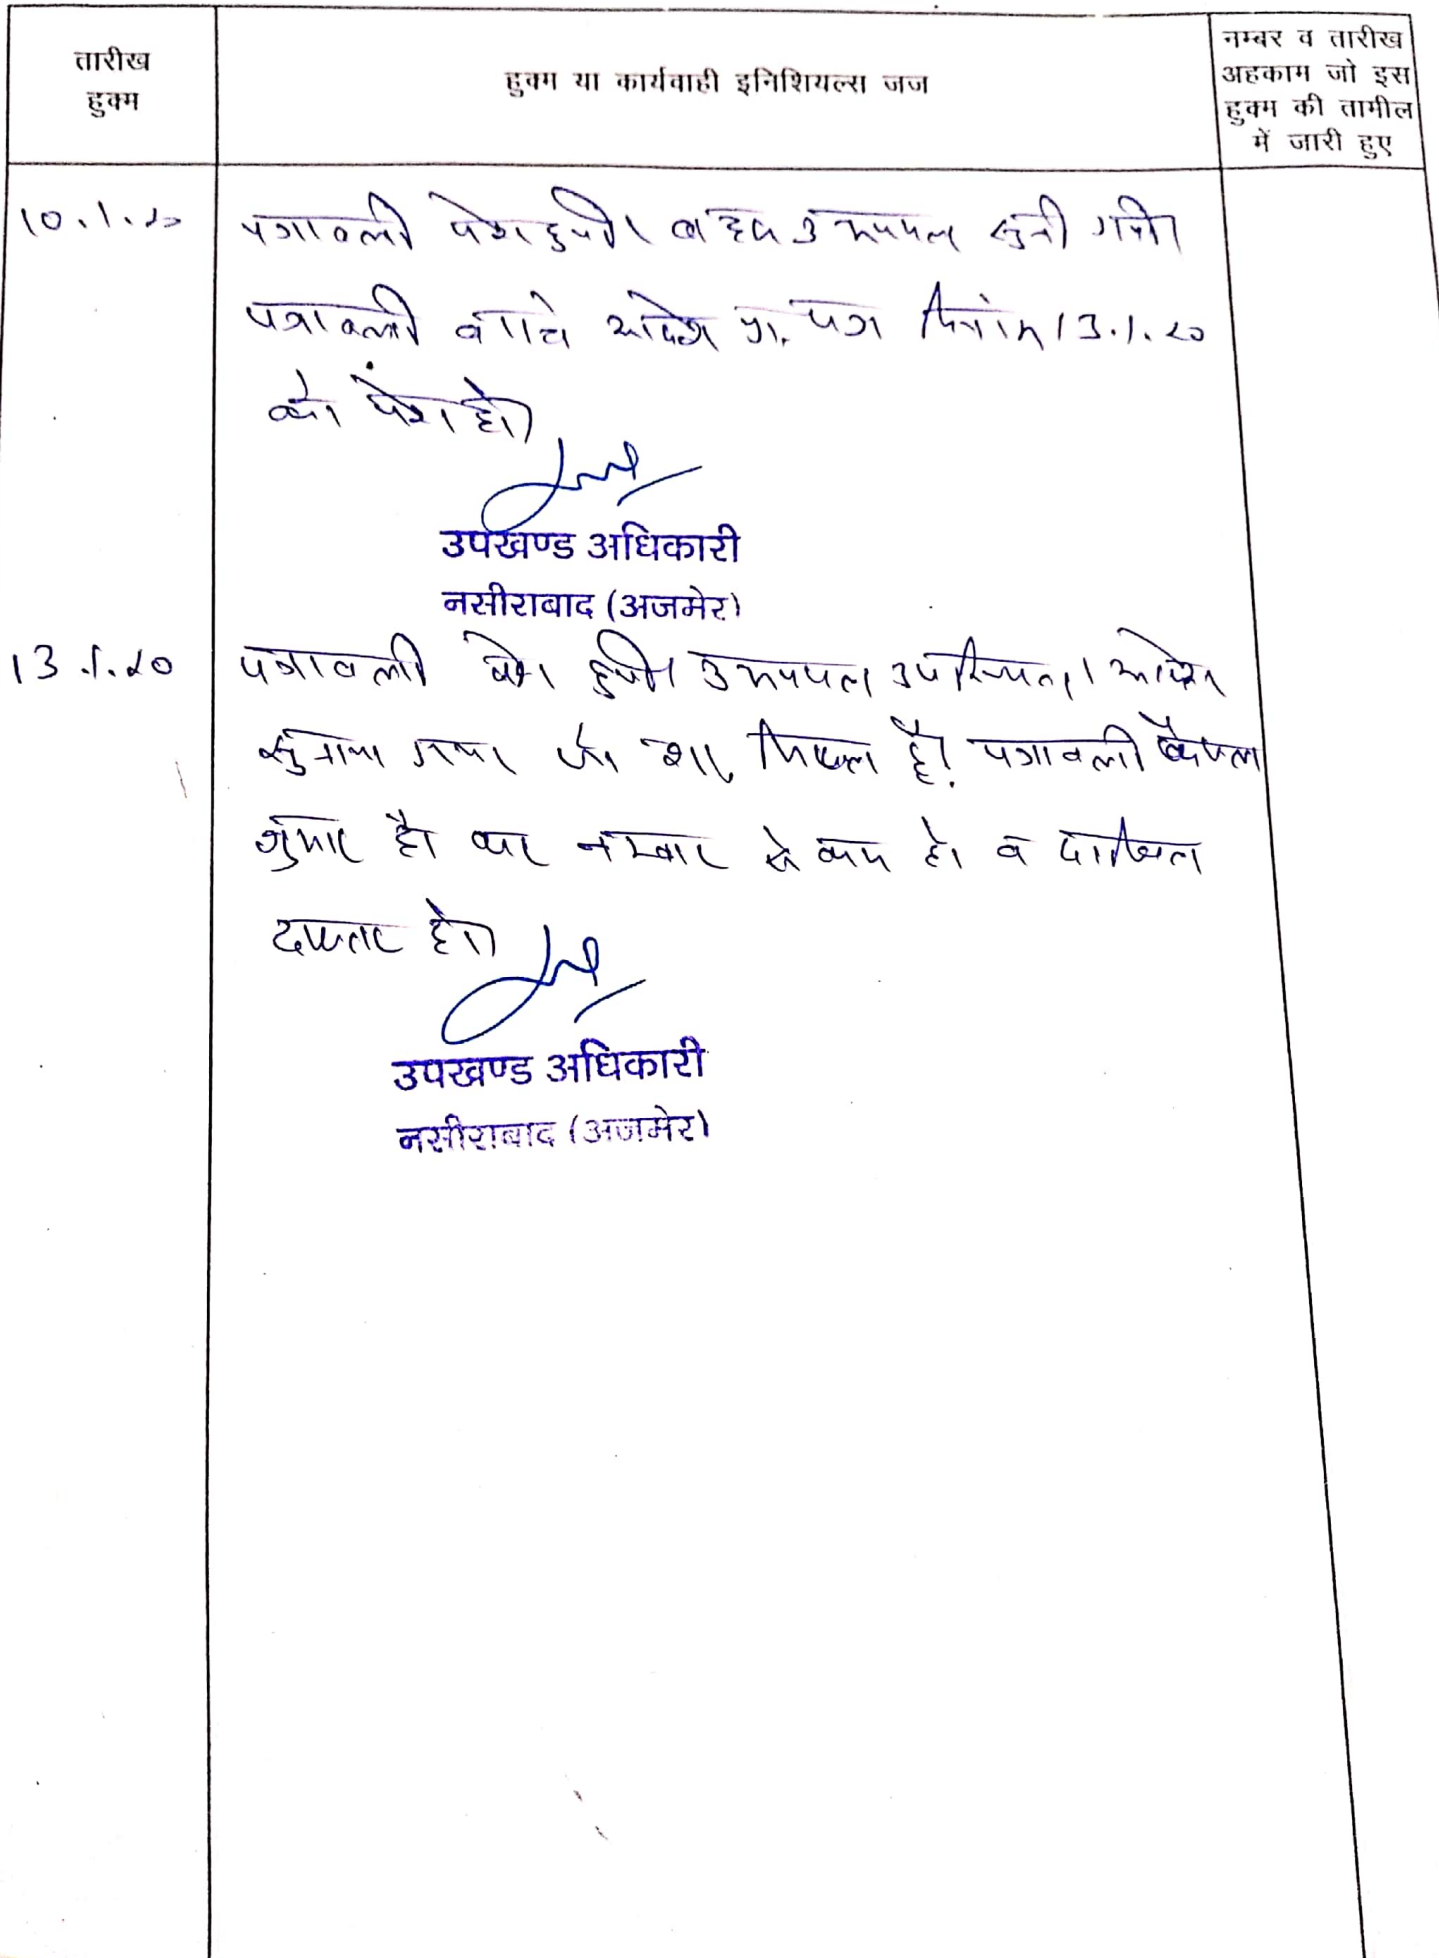 तारीख
हुक्म
हुक्म या कार्यवाही इनिशियल्स जज
नम्बर व तारीख
अहकाम जो इस
हुक्म की तामील
में जारी हुए
10.1.20
पत्रावली पेश हुयी। बहस उभयपक्ष सुनी गयी।
पत्रावली वास्ते आदेश प्रा. पत्र दिनांक 13.1.20
को पेश हो।
उपखण्ड अधिकारी
नसीराबाद (अजमेर)
13.1.20
पत्रावली पेश हुयी। उभयपक्ष उपस्थित। आदेश
सुनाया गया जो शा. मिसल है। पत्रावली फैसल
शुमार हो कर नम्बर से कम हो व दाखिल
दफ्तर हो।
उपखण्ड अधिकारी
नसीराबाद (अजमेर)